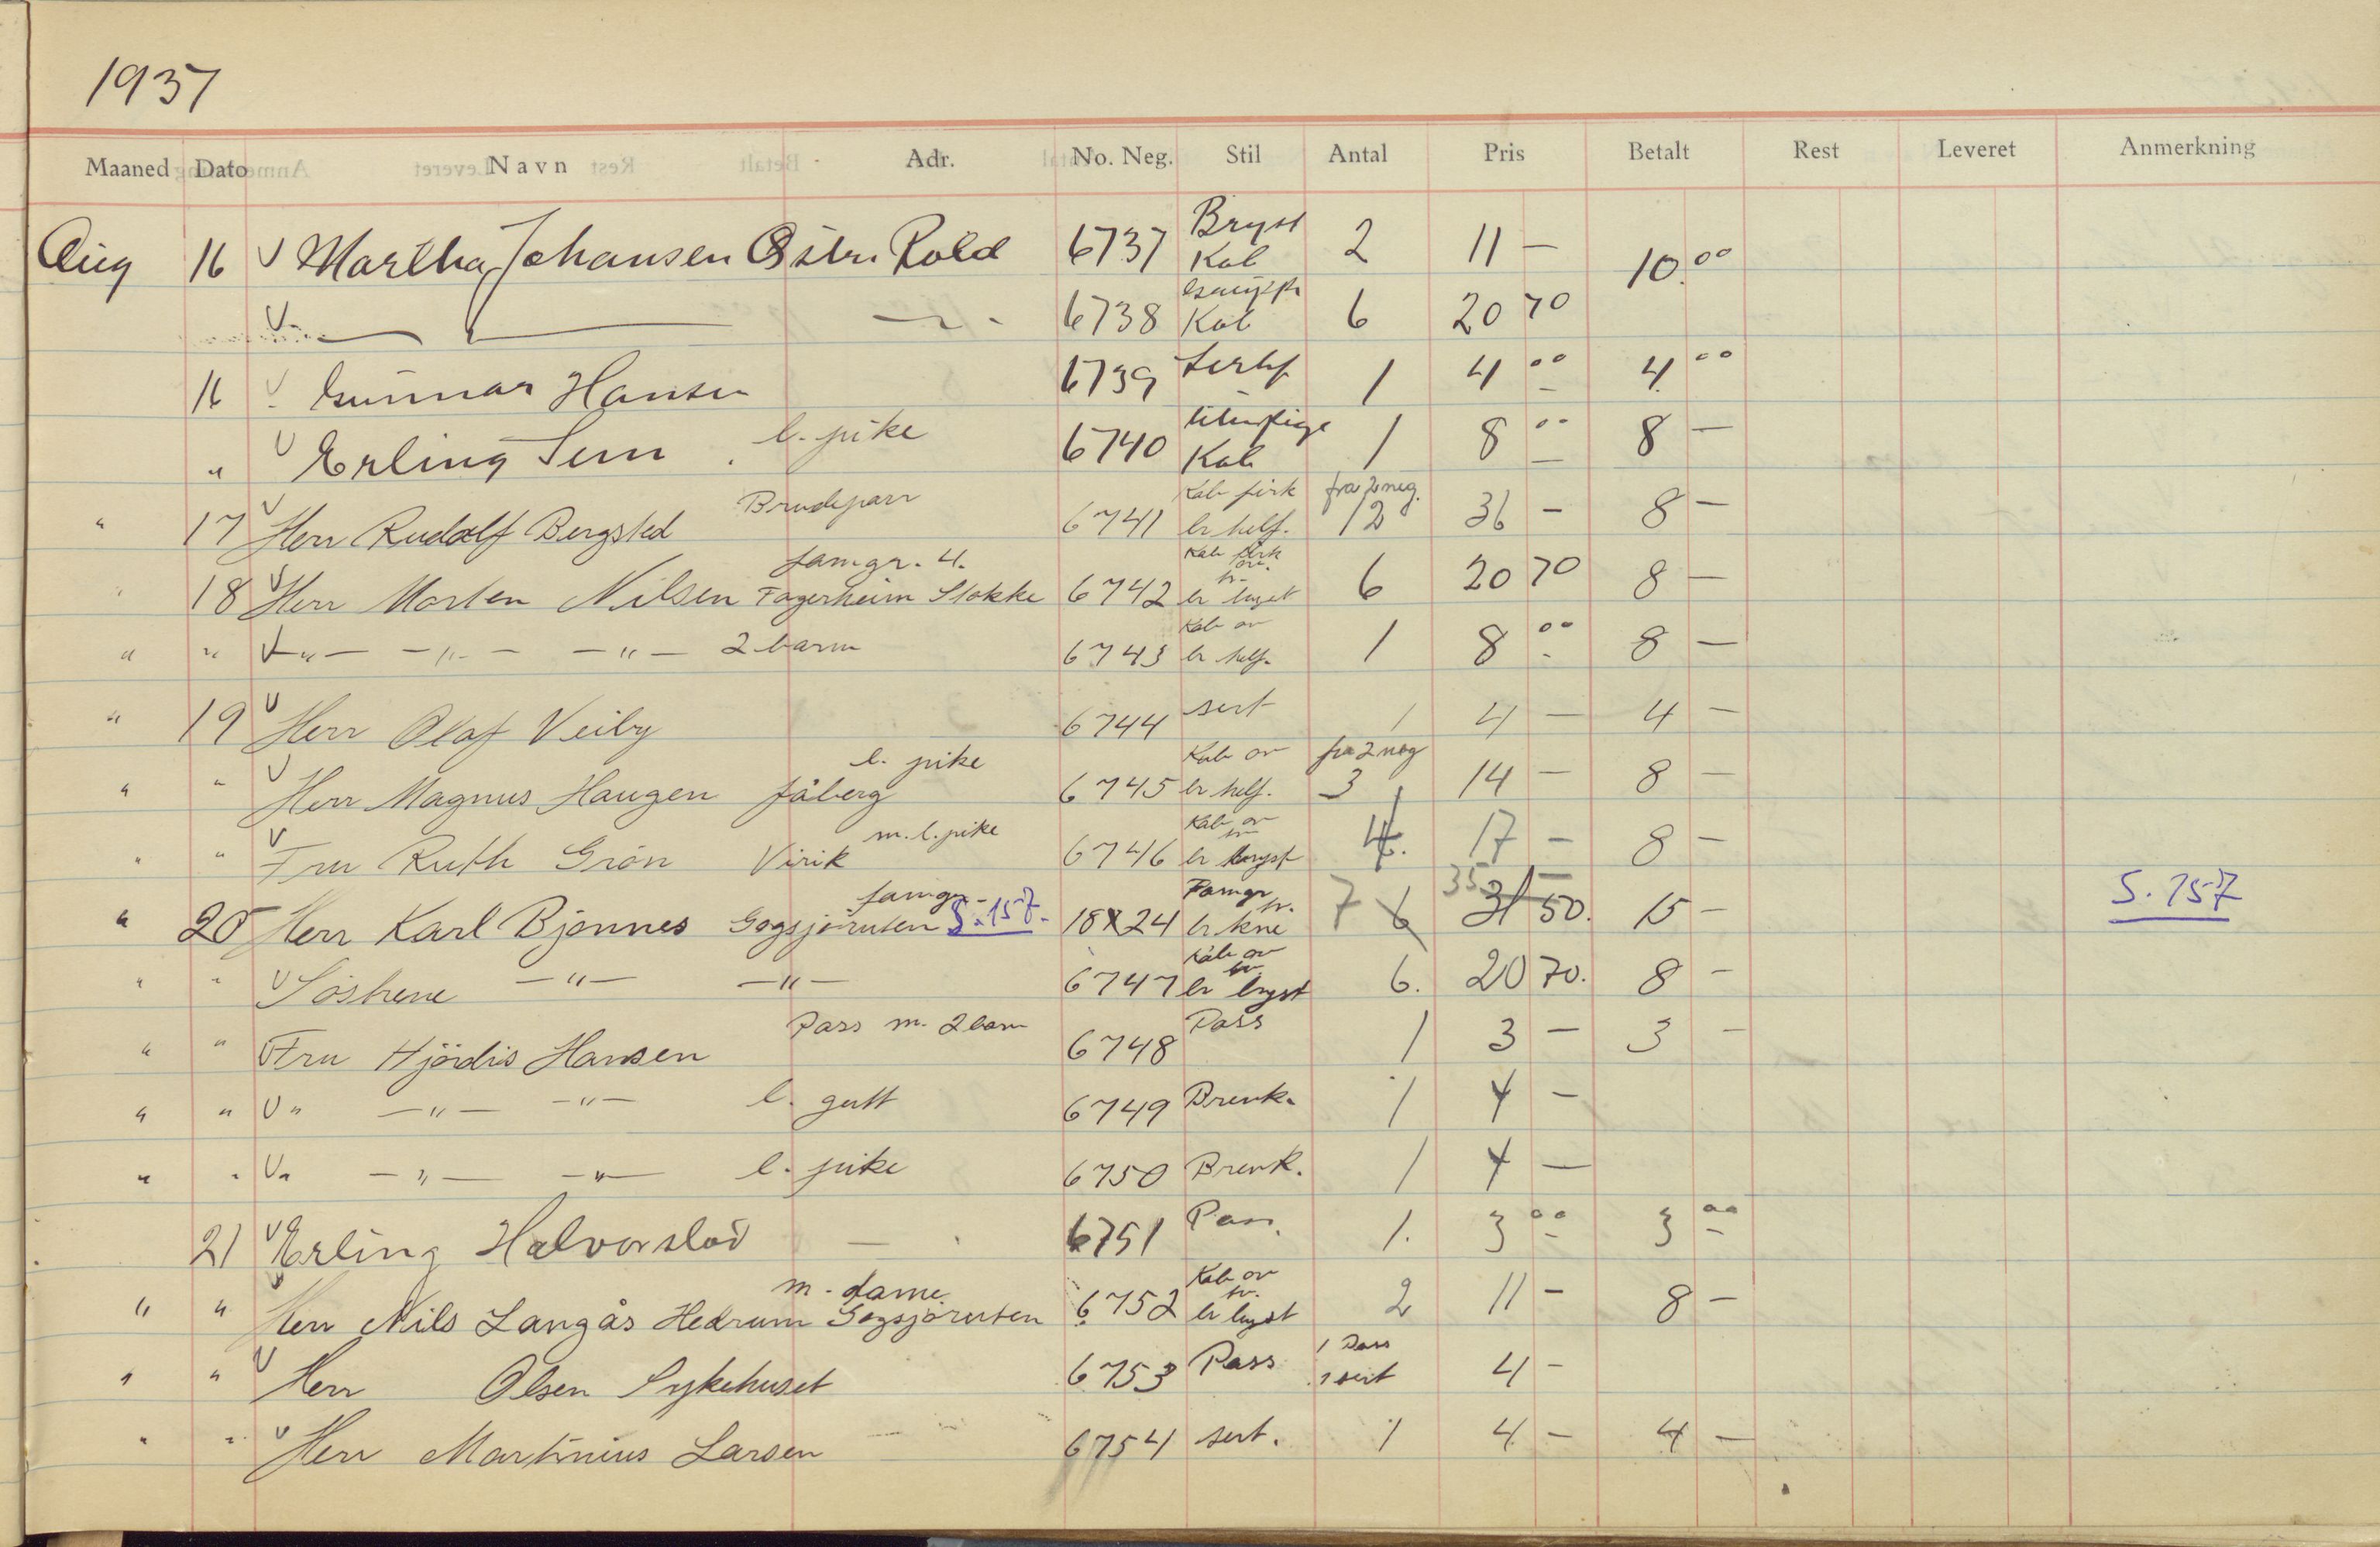 1937
Maaned Dato Navn Adr. No. Neg. Stil Antal Pris Betalt Rest Leveret Anmerkning
Aug 16 V Martha Johansen Östr. Rold 6737 Bryst Kab 2 11 — 10.00
V — 6738 Kab 6 20 70
16 V Gunnar Hansen 6739 Sertf 1 4 00 4.00
" V Erling Sem l. pike 6740 Kab 1 8 00 8 —
" 17 V Herr Rudolf Bergsted Brudeparr 6741 Kab br helf. fra 2 neg. 12 36 — 8 —
" 18 V Herr Morten Nilsen Fagerheim Stokke famgr. 4. 6742 Kab br bryst 6 20 70 8 —
" " V — " — — " — — " — 2 barn 6743 Kab ov br helf. 1 8 00 8 —
" 19 V Herr Olaf Veiby 6744 sert 1 4 — 4 —
" " V Herr Magnus Haugen Jåberg l. pike 6745 Kab ov br helf. fra 2 neg 3 14 — 8 —
" " V Fru Ruth Grön Virik m. l. pike 6746 Kab ov br bryst 4. 17 — 8 —
" 20 Herr Karl Bjønnes Gogsjøruten famgr. S. 157. 18x24 Famgr br kne 7 6 35 31 50. 15 — S. 157
" " V Söstrene — " — — " — 6747 Kab ov br bryst 6. 20 70. 8 —
" " V Fru Hjördis Hansen Pass m. 2 barn 6748 Pass 1 3 — 3 —
" " V " — " — — " — l. gutt 6749 Brevk. 1 4 —
" " V " — " — — " — l. pike 6750 Brevk. 1 4 —
21 V Erling Halvorslöd — 6751 Pass. 1. 3 00 3 00
" " V Herr Nils Langås Hedrum Gogsjøruten m. dame 6752 Kab ov br bryst 2 11 — 8 —
" " V Herr Olsen Sykehuset 6753 Pass 1 Pass 1 sert 4 —
" " V Herr Martinius Larsen 6754 sert. 1 4 — 4 —